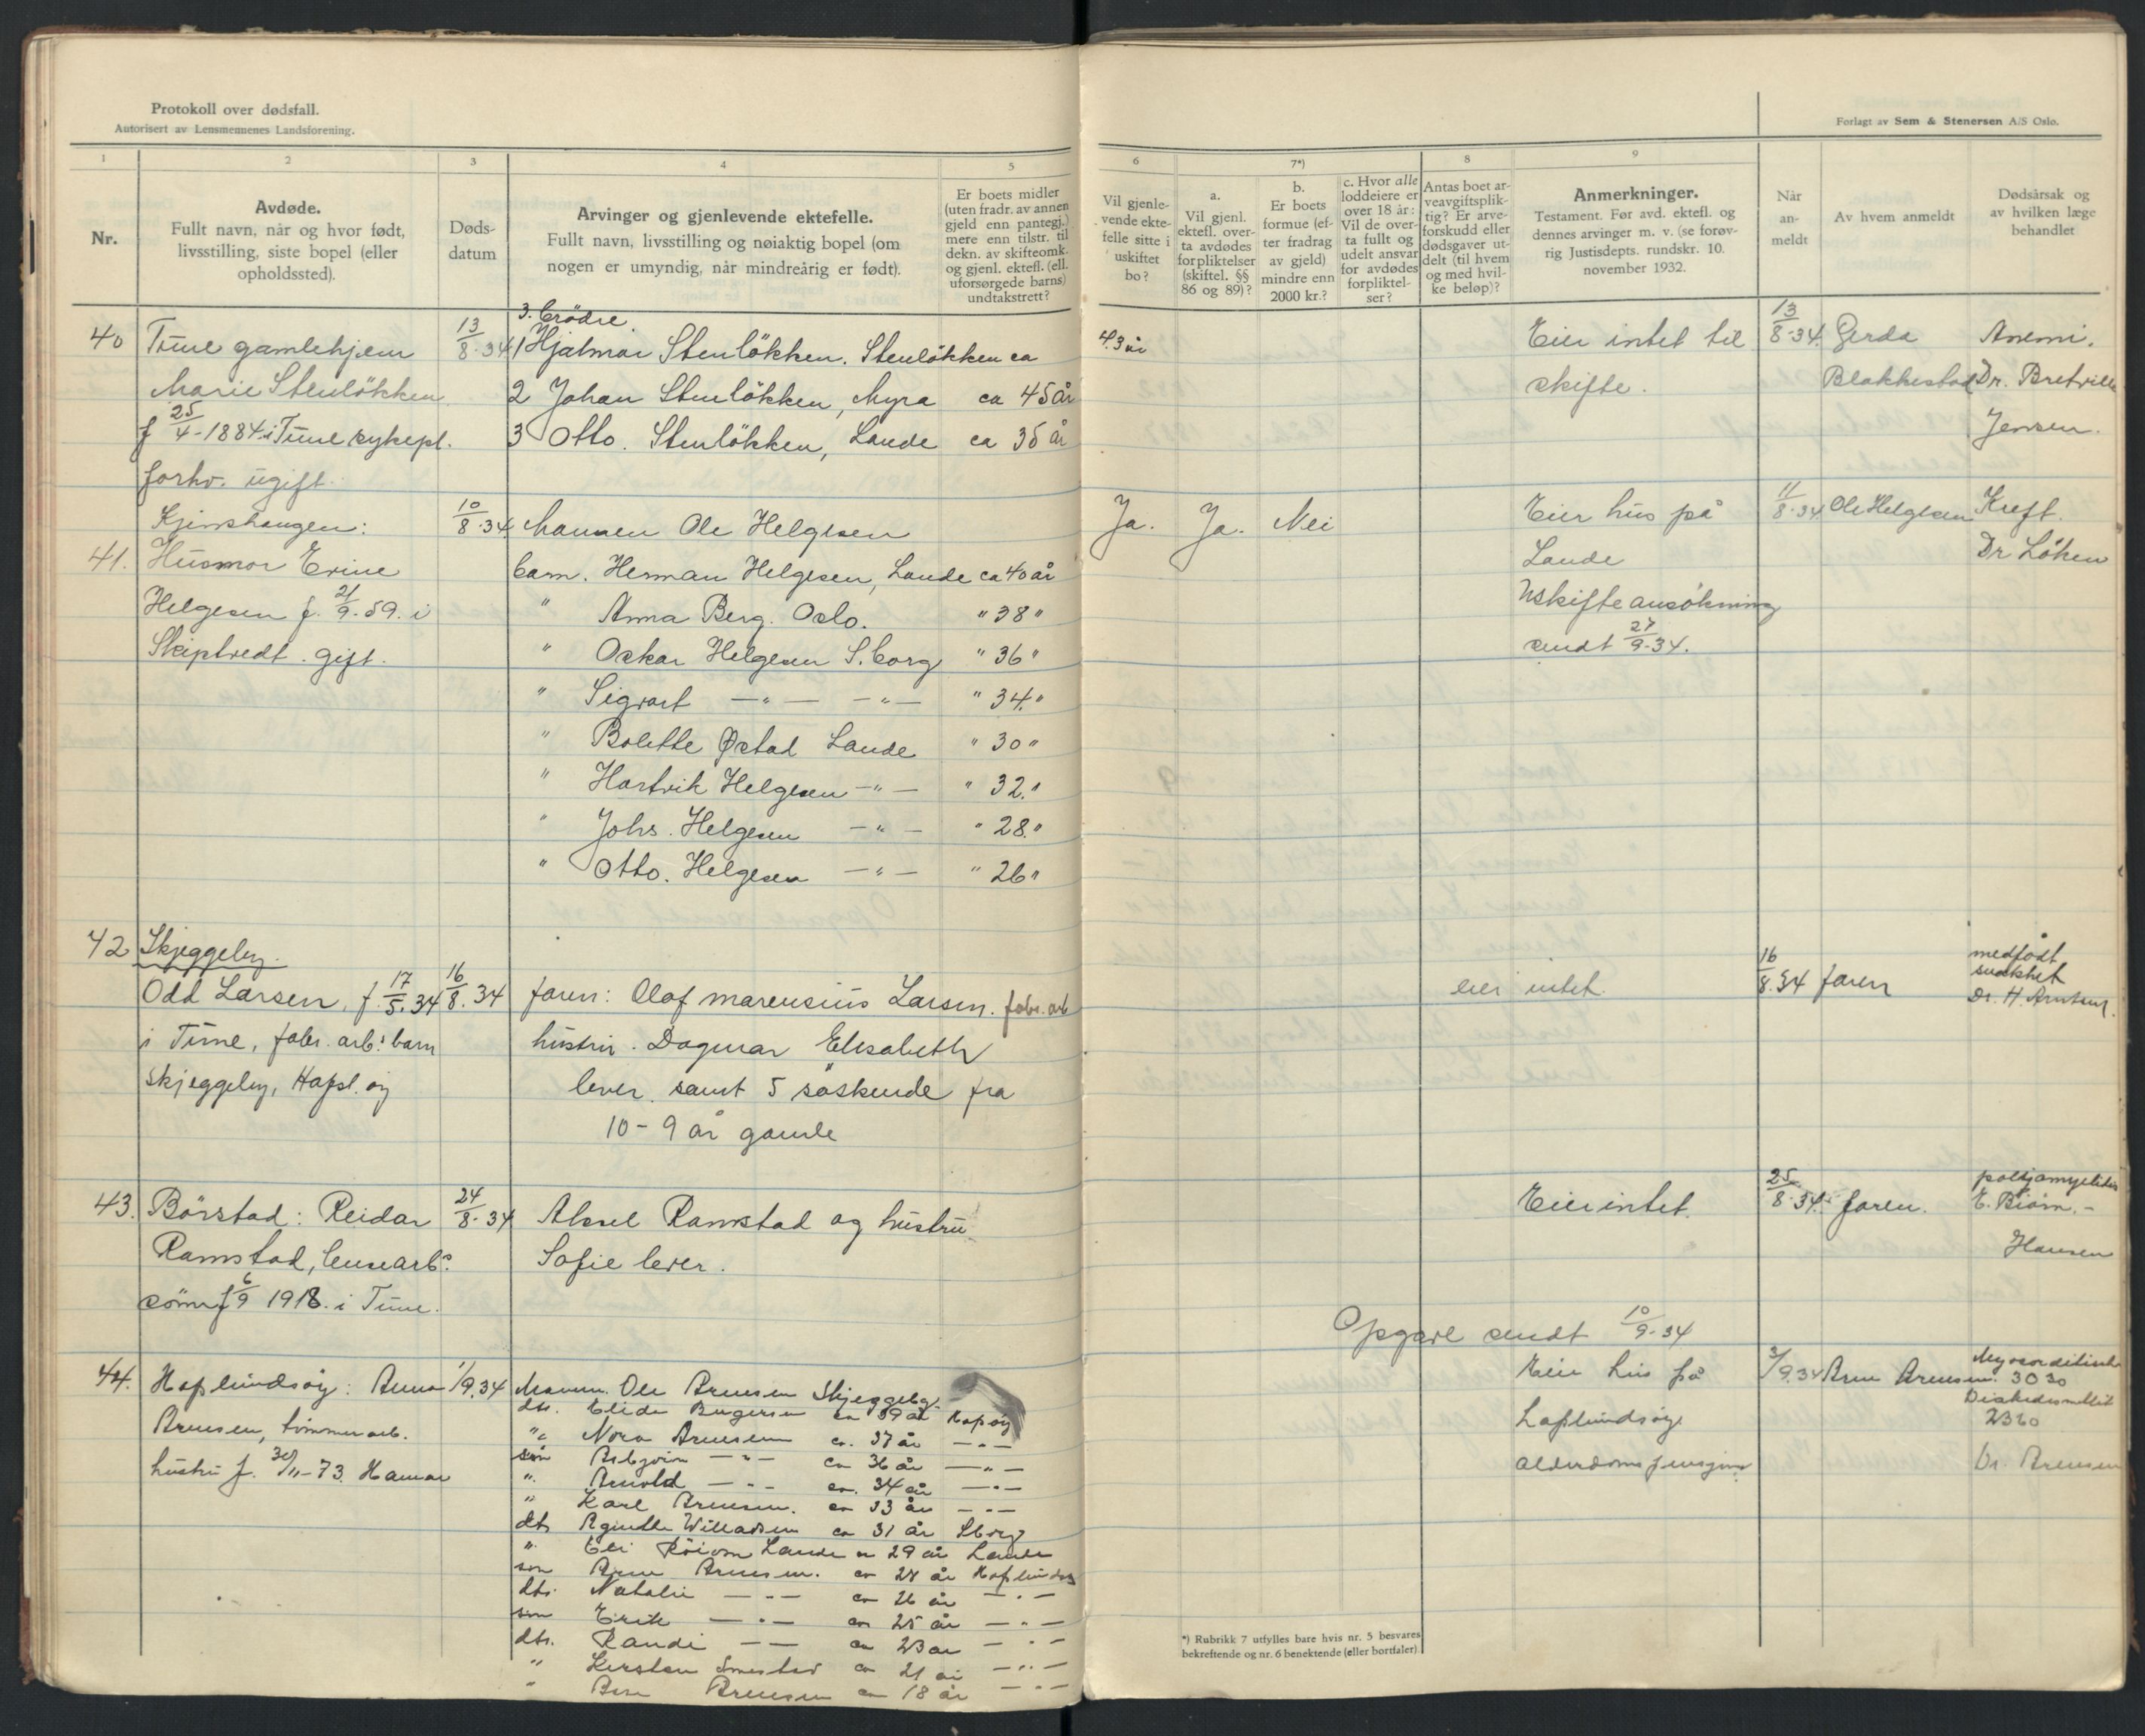 Protokoll over dødsfall.
Autorisert av Lensmennenes Landsforening.
1
2
3
4
5
Nr.
Avdøde.
Fullt navn, når og hvor født,
livsstilling, siste bopel (eller
opholdssted).
Døds-
datum
Arvinger og gjenlevende ektefelle.
Fullt navn, livsstilling og nøiaktig bopel (om
nogen er umyndig, når mindreårig er født).
Er boets midler
(uten fradr. av annen
gjeld enn pantegj.)
mere enn tilstr. til
dekn. av skifteomk.
og gjenl. ektefl. (ell.
uforsørgede barns)
undtakstrett?
40
Tune gamlehjem
Marie Stenlökken
f 25/4-1884 i Tune sykepl.
forhv. ugift.
13/8-34
3. brödre.
1 Hjalmar Stenlökken. Stenlökken ca
2 Johan Stenlökken, Myra ca 45 år
3 Otto. Stenlökken, Lande ca 35 år
Kjinshaugen:
41. Husmor Erine
Helgesen f. 21/9.59. i
Skiptvedt. gift.
10/8-34
Mannen Ole Helgesen
barn. Herman Helgesen, Lande ca 40 år
" Anna Berg. Oslo. " 38 "
" Oskar Helgesen S.borg " 36 "
" Sigvart —"— —"— " 34. "
" Bolette Østad Lande " 30 "
" Hartvik Helgesen —"— " 32. "
" Johs. Helgesen —"— " 28. "
" Otto. Helgesen —"— " 26 "
42 Skjeggeby.
Odd Larsen, f. 17/5.34
i Tune, fabr. arb.s barn
Skjeggeby, Hapsl. øy
16/8.34
faren: Olaf marensius Larsen. fabr. arb
hustru. Dagmar Elisabeth
lever. samt 5 söskende fra
10 - 9 år gamle
43. Börstad: Reidar
Ramstad, lensearb.s
sönn f 6/9 1918. i Tune.
24/8-34
Aksel Ramstad og hustru
Sofie lever.
44. Haplundsøy: Anna
Arnesen, tömmerarb.
hustru f. 30/11-73. Hamar
1/9.34
Mannen. Ole Arnesen Skjeggeby.
dtr. Elida Bugersen ca 39 år Hapøy
" Nora Arnesen ca. 37 år —"—
sön Asbjörn —"— ca 36 år —"—
" Arnold —"— ca. 34 år —"—
" Karl Arnesen. ca 33 år —"—
dtr. Aginthe Willadsen ca 31 år Sborg
" Eli Lande ca 29 år Lande
sön Arne Arnesen. ca 28 år Haplundsøy
dtr. Natalie —"— ca 26 år —"—
sön Erik —"— ca 25 år —"—
dtr. Randi —"— ca 23 år —"—
" Kirsten Smestad ca 21 år —"—
" Arnesen ca 18 år —"—
Forlagt av Sem & Stenersen A/S Oslo.
6
7*)
8
9
Vil gjenle-
vende ekte-
felle sitte i
uskiftet
bo?
a.
Vil gjenl.
ektefl. over-
ta avdødes
forpliktelser
(skiftel. §§
86 og 89)?
b.
Er boets
formue (ef-
ter fradrag
av gjeld)
mindre enn
2000 kr.?
c. Hvor alle
loddeiere er
over 18 år:
Vil de over-
ta fullt og
udelt ansvar
for avdødes
forpliktel-
ser?
Antas boet ar-
veavgiftsplik-
tig? Er arve-
forskudd eller
dødsgaver ut-
delt (til hvem
og med hvil-
ke beløp)?
Anmerkninger.
Testament. Før avd. ektefl. og
dennes arvinger m. v. (se forøv-
rig Justisdepts. rundskr. 10.
november 1932.
Når
an-
meldt
Av hvem anmeldt
Dødsårsak og
av hvilken læge
behandlet
43 år
Eier intet til
skifte.
13/8-34.
Gerda
Blakkestad
Anemi.
Dr. Bretville
Jensen.
Ja. Ja. Nei
Eier hus på
Lande
Uskifteansökning
sendt 27/9-34.
11/8-34.
Ole Helgesen
Kreft.
Dr Löken
eier intet.
16/8.34
faren
medfödt
svakhet
Dr. H. Arntsen.
Eier intet.
25/8-34.
faren.
poliomyelitis
E. Biörn.-
Hansen
Opgave sendt 10/9-34
Eier hus på
Haplundsøy
alderdomspensjon
3/9.34
Arne Arnesen.
3030
2360
Dr. Arnesen
*) Rubrikk 7 utfylles bare hvis nr. 5 besvares
bekreftende og nr. 6 benektende (eller bortfaler)